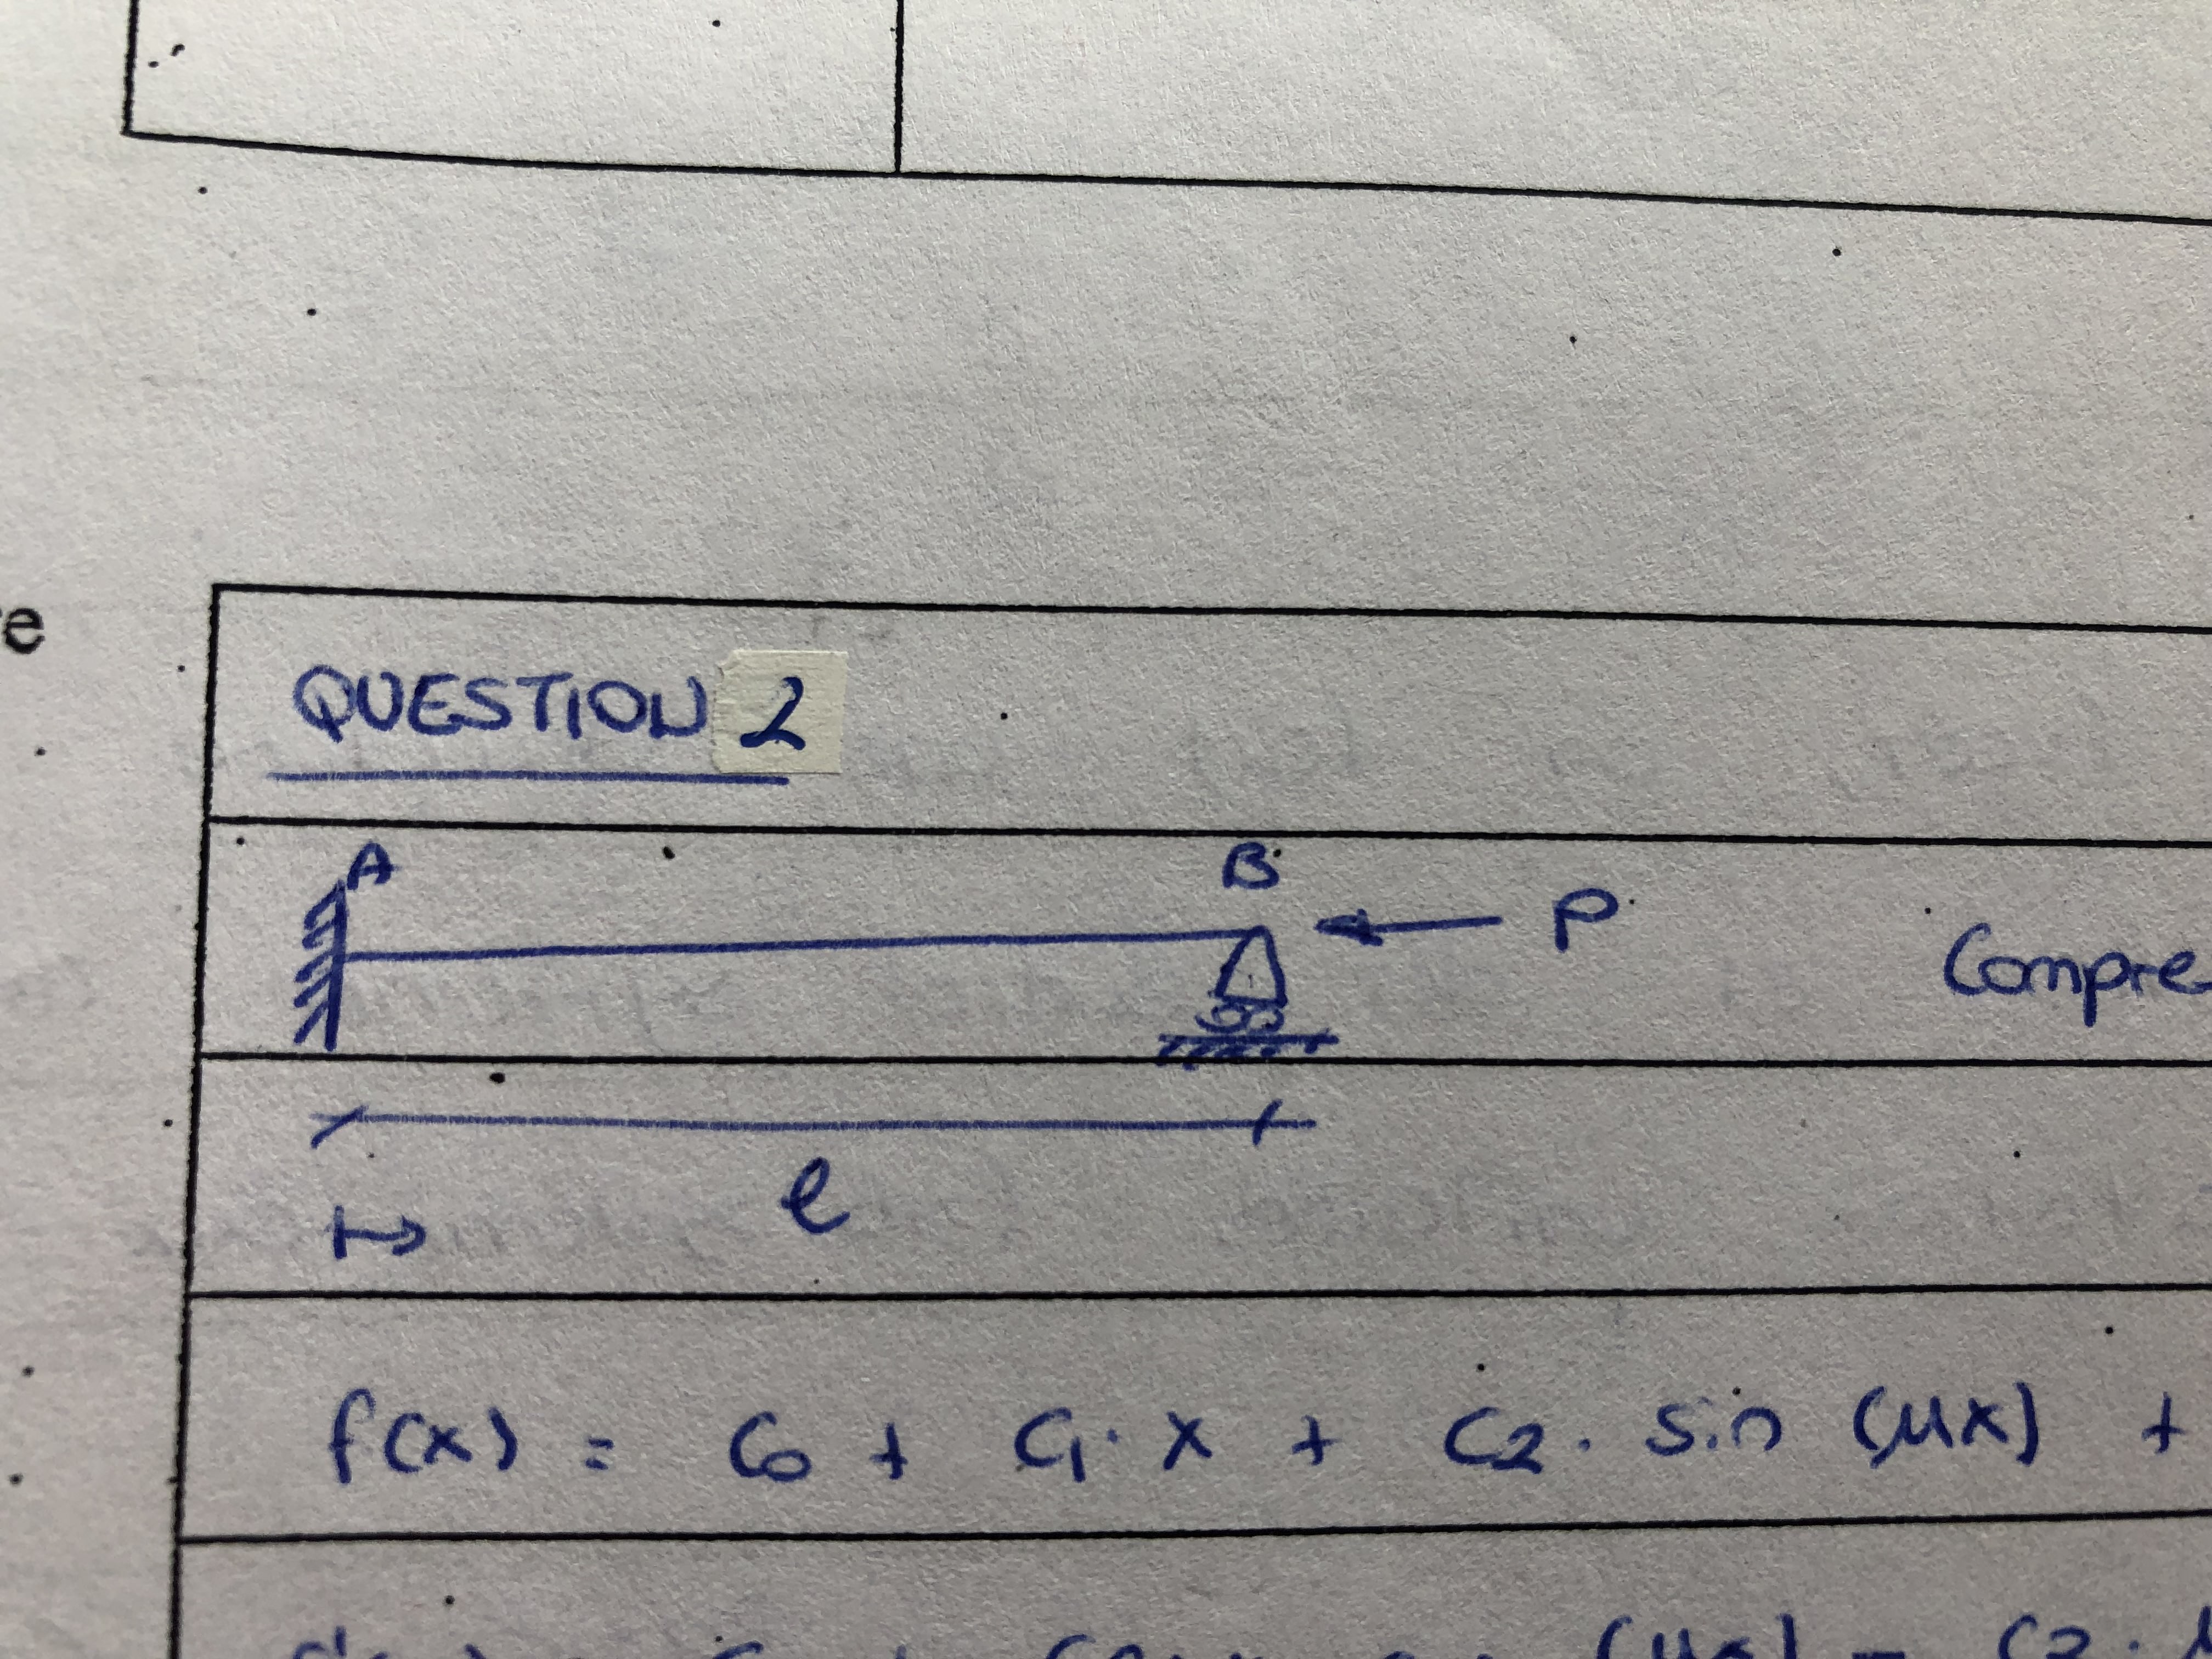 QUESTION 2
A
B
P
Compre
l
f(x) = C0 + C1·x + C2·sin(μx) +